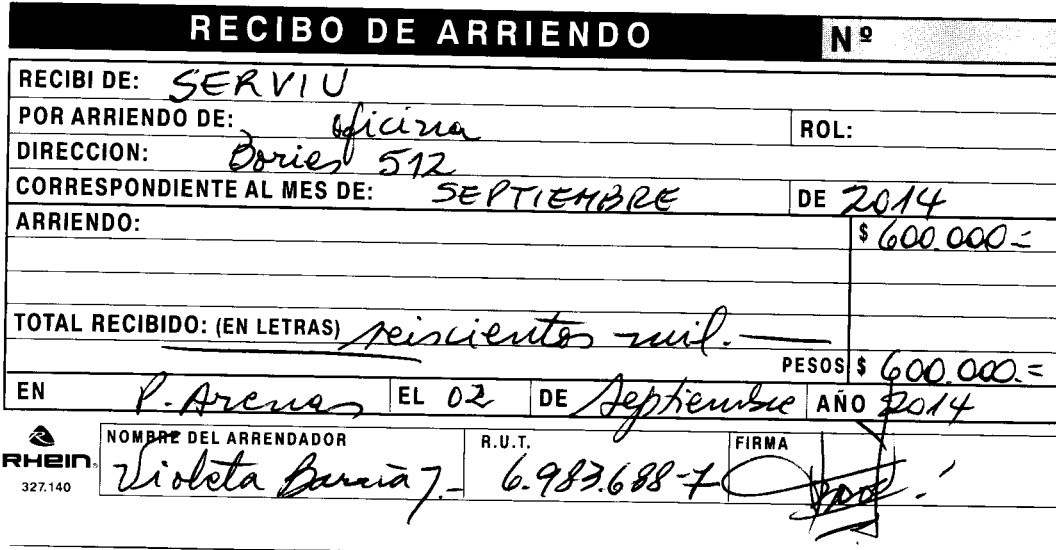 RECIBO DE ARRIENDO Nº
RECIBI DE: SERVIU
POR ARRIENDO DE: oficina ROL:
DIRECCION: Bories 512
CORRESPONDIENTE AL MES DE: SEPTIEMBRE DE 2014
ARRIENDO: $ 600.000=
TOTAL RECIBIDO: (EN LETRAS) seiscientos mil.—
PESOS $ 600.000.=
EN P. Arenas EL 02 DE Septiembre AÑO 2014
RHEIN. NOMBRE DEL ARRENDADOR R.U.T. FIRMA
327.140 Violeta Barría 6.983.688-7